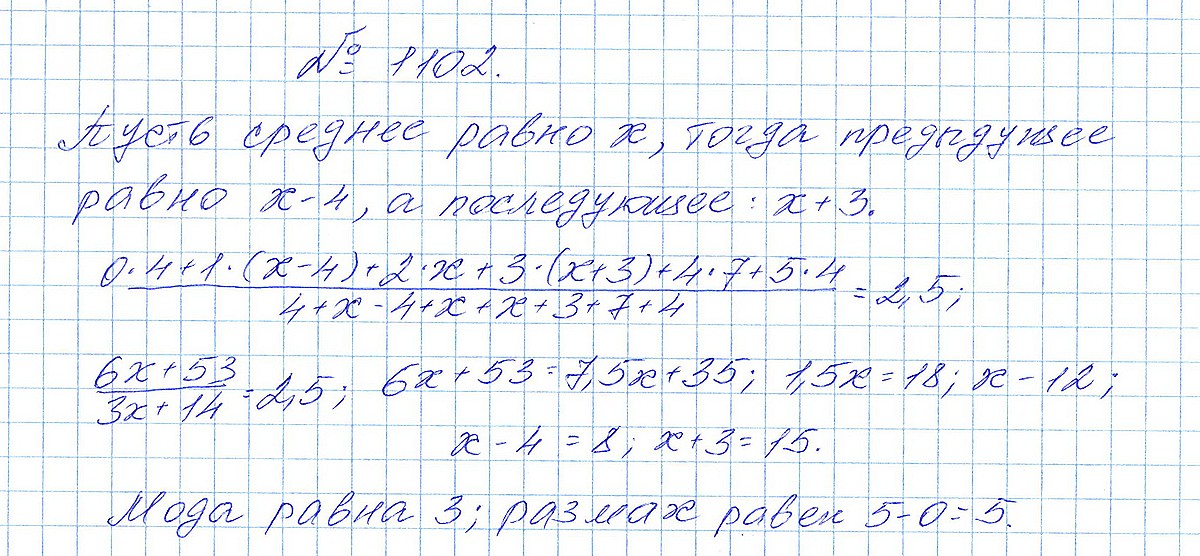 № 1102.
Пусть среднее равно x, тогда предыдущее
равно x-4, а последующее: x+3.
0·4+1·(x-4)+2·x+3·(x+3)+4·7+5·4
4+x-4+x+x+3+7+4 = 2,5;
6x+53 / 3x+14 = 2,5; 6x+53=7,5x+35; 1,5x=18; x-12;
x-4=8; x+3=15.
Мода равна 3; размах равен 5-0=5.